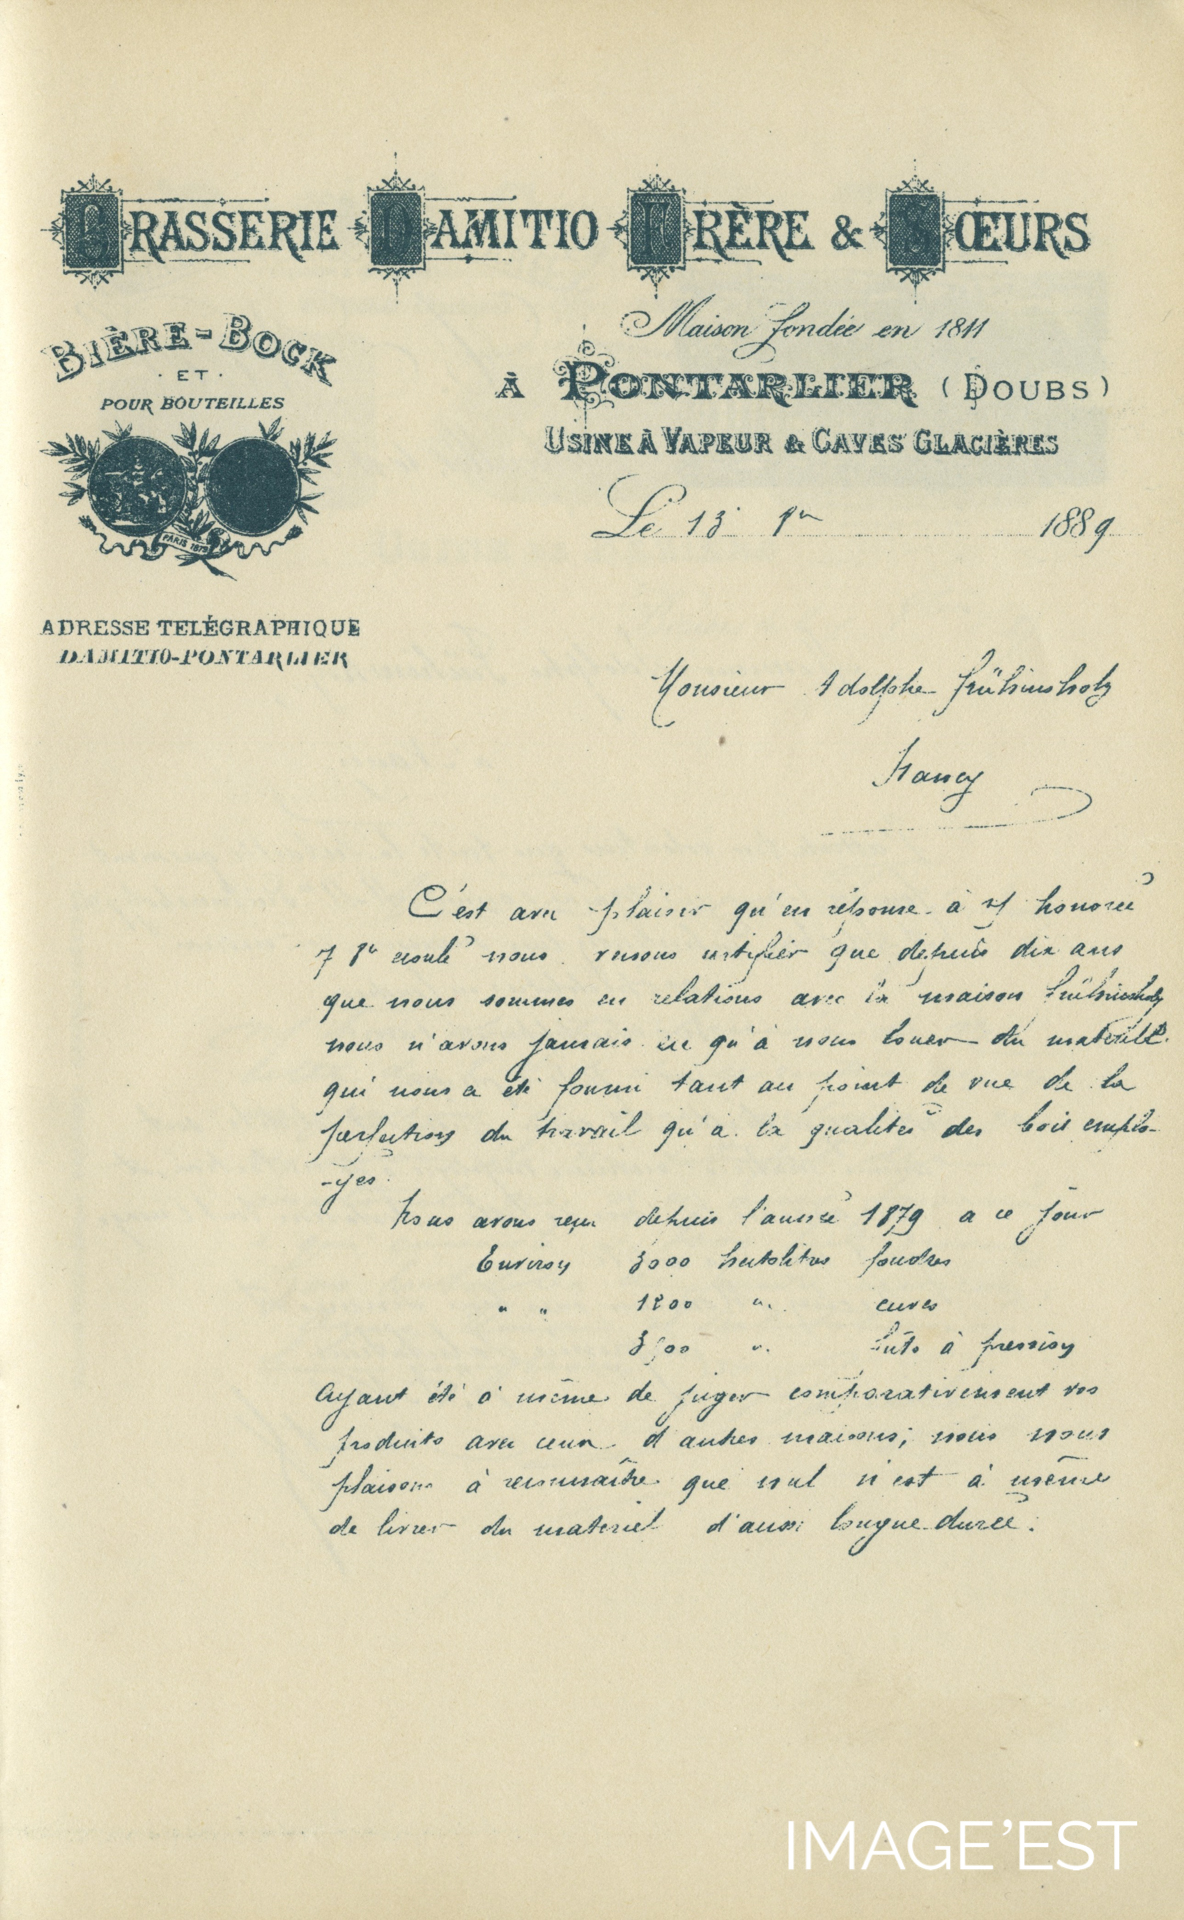 BRASSERIE DAMITIO FRÈRE & SŒURS
Maison fondée en 1811
BIÈRE-BOCK
· ET ·
POUR BOUTEILLES
À PONTARLIER (DOUBS)
USINE À VAPEUR & CAVES GLACIÈRES
PARIS 1879
Le 13 1889
ADRESSE TELÉGRAPHIQUE
DAMITIO-PONTARLIER
Monsieur Adolphe Frühinsholz
Nancy
C'est avec plaisir qu'en réponse à honorée
7 écoulé nous venons certifier que depuis dix ans
que nous sommes en relations avec la maison Frühinsholz
nous n'avons jamais eu qu'à nous louer du matériel
qui nous a été fourni tant au point de vue de la
perfection du travail qu'à la qualités des bois emplo-
-yés.
Nous avons reçu depuis l'année 1879 a ce jour
Environ 3000 hectolitres foudres
" " 1200 " cuves
" fûts à pression
Ayant été à même de juger comparativement vos
produits avec ceux d'autres maisons; nous nous
plaisons à reconnaître que nul n'est à même
de livrer du matériel d'aussi longue durée.
IMAGE'EST